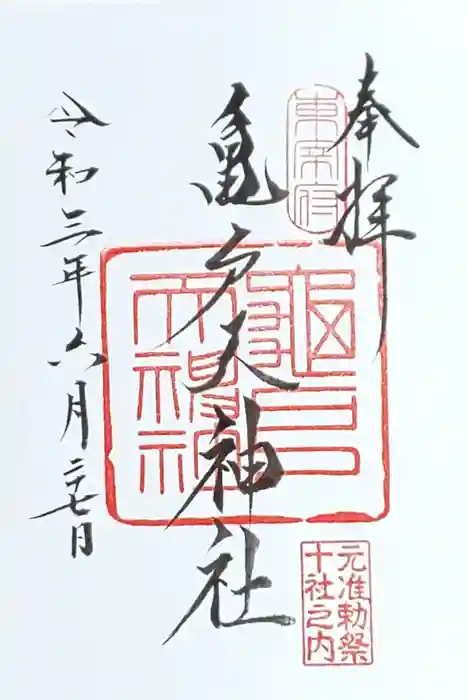 奉拝
東宰府
亀戸天神社
元准勅祭
十社之内
令和三年六月二十七日